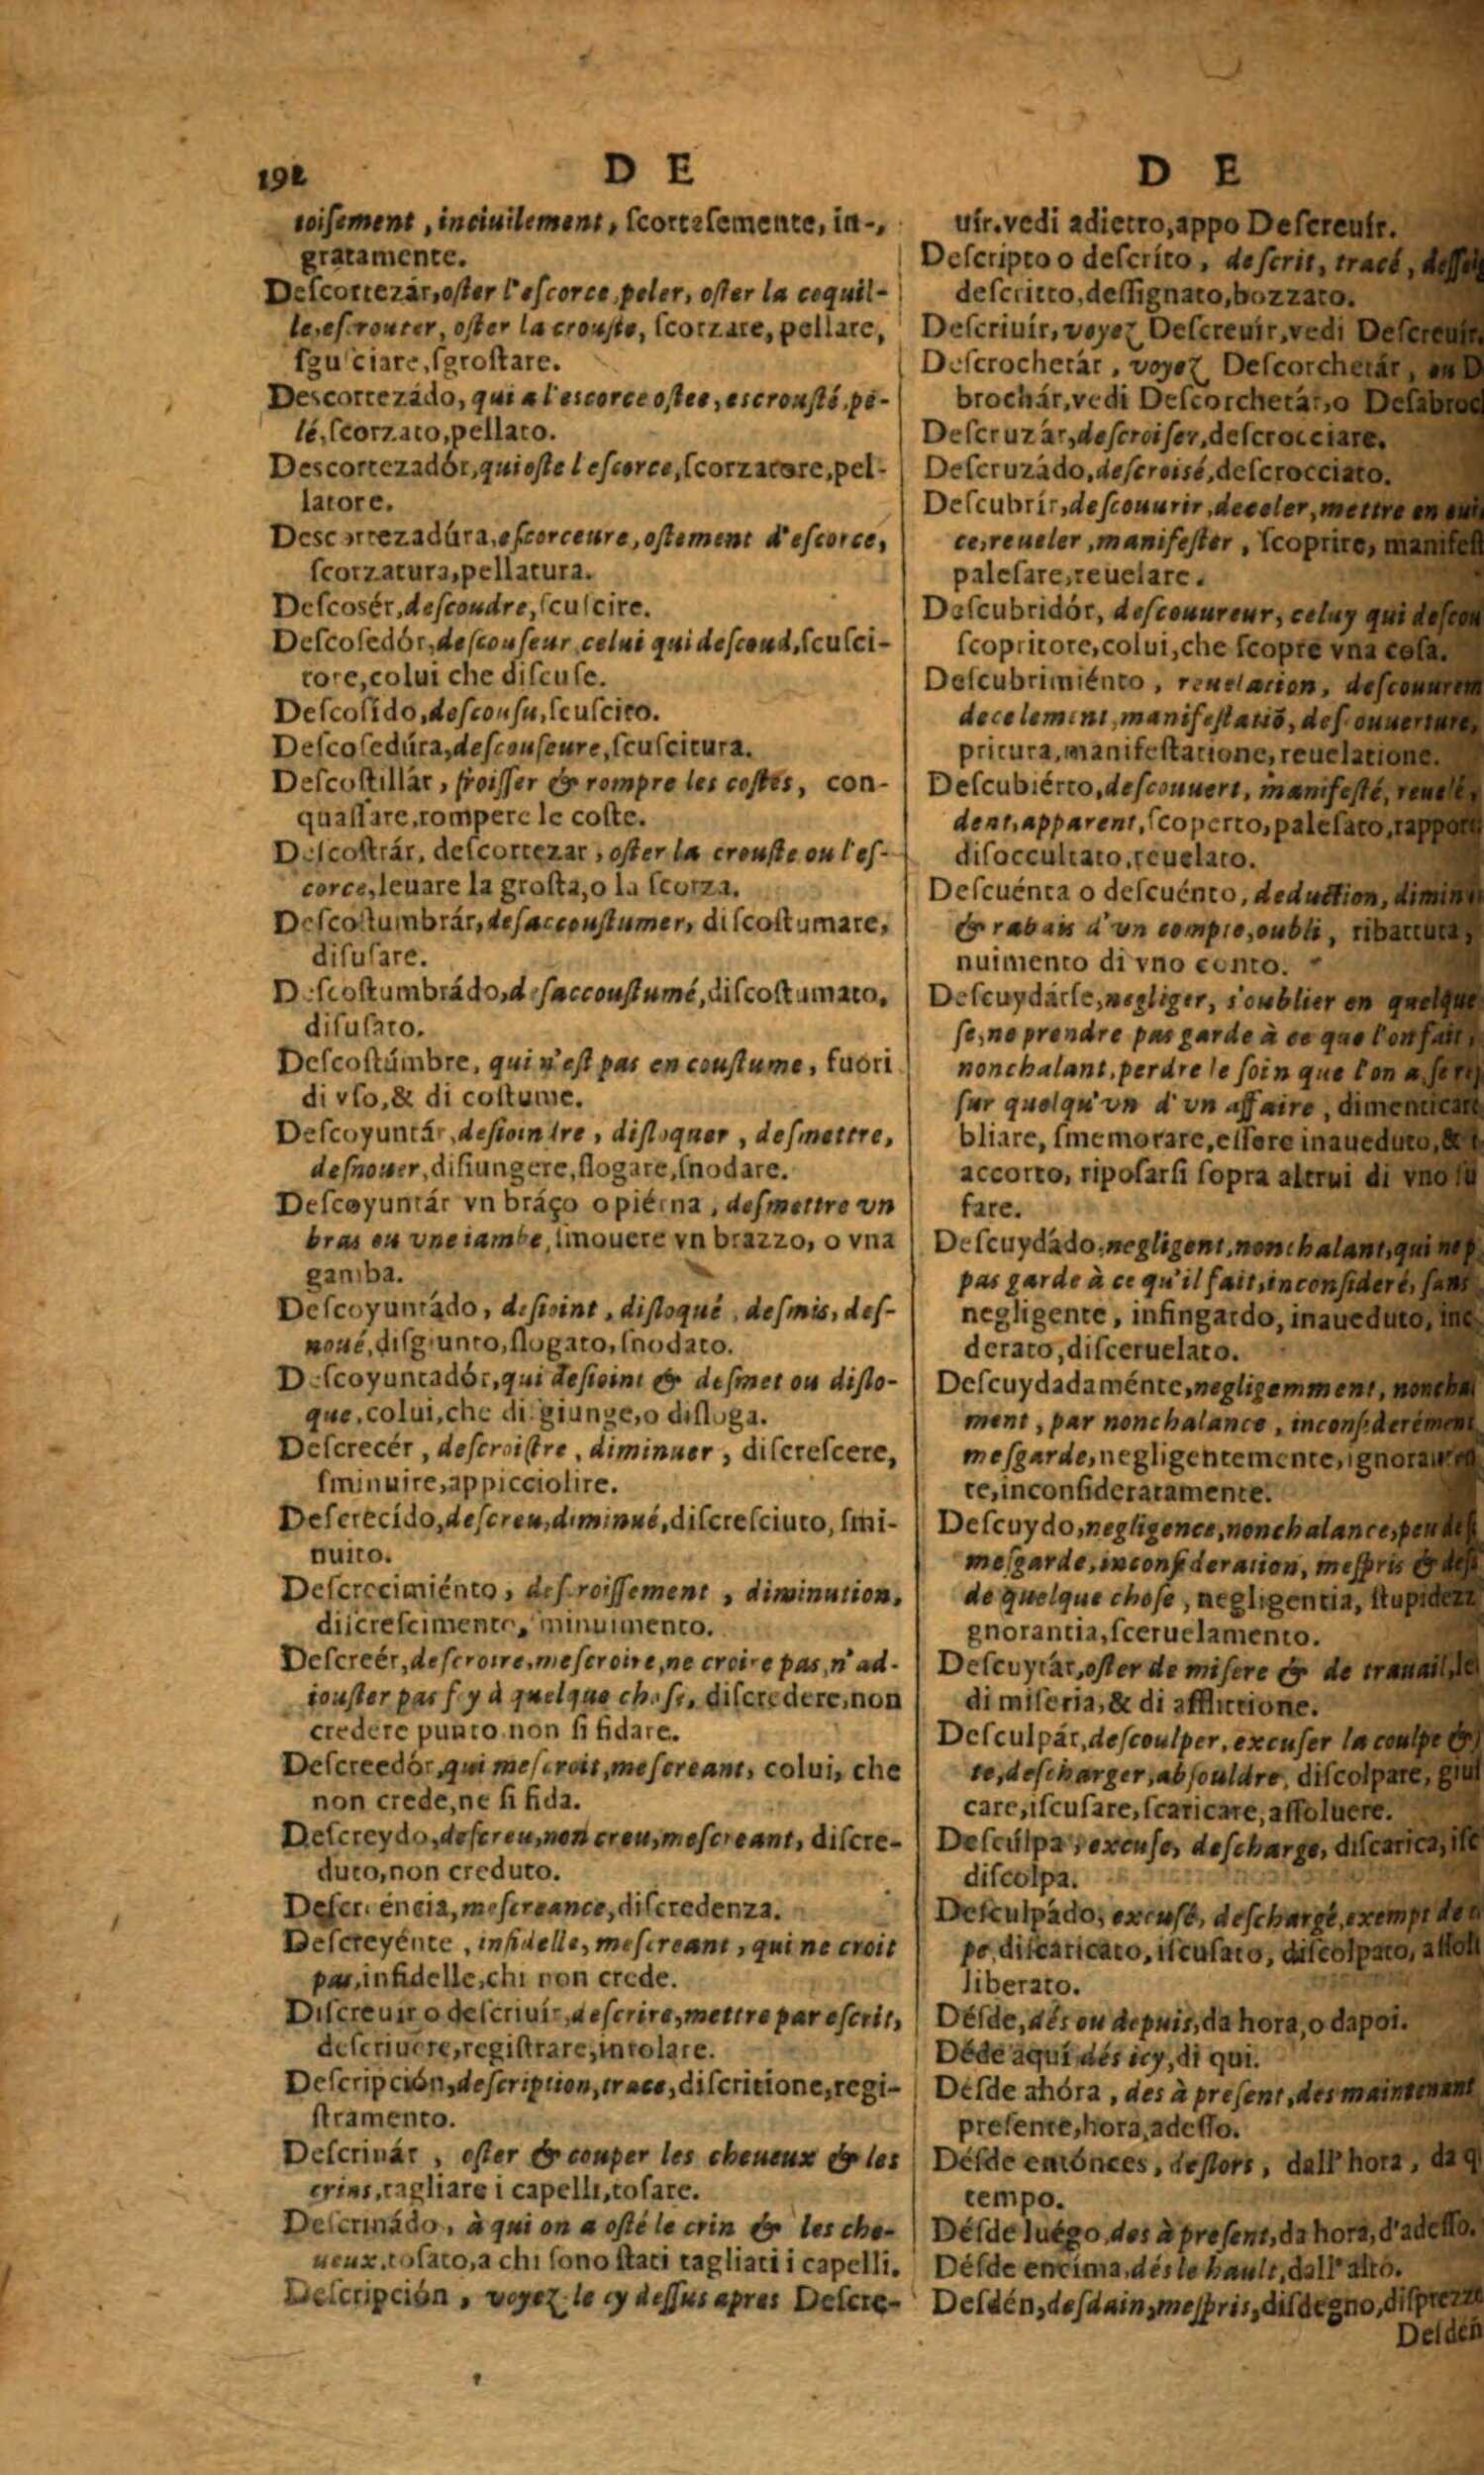 192
D E
toiſement, inciuilement, ſcorteſemente, in-
gratamente.
Deſcortezár, oſter l'eſcorce, peler, oſter la coquil-
le, eſcrouter, oſter la crouſte, ſcorzare, pellare,
ſguſciare, ſgroſtare.
Descortezádo, qui a l'escorce oſtee, escrouſté, pe-
lé, ſcorzato, pellato.
Descortezadór, qui oſte l'eſcorce, ſcorzatore, pel-
latore.
Descortezadúra, eſcorceure, oſtement d'eſcorce,
ſcorzatura, pellatura.
Deſcosér, deſcoudre, ſcuſcire.
Deſcoſedór, deſcouſeur, celui qui deſcoud, ſcuſci-
tore, colui che diſcuſe.
Deſcoſido, deſcouſu, ſcuſcito.
Deſcoſedúra, deſcouſeure, ſcuſcitura.
Deſcoſtillár, froiſſer & rompre les coſtes, con-
quaſſare, rompere le coſte.
Deſcoſtrár, deſcortezar, oſter la crouſte ou l'eſ-
corce, leuare la groſta, o la ſcorza.
Deſcoſtumbrár, deſaccouſtumer, diſcoſtumare,
diſuſare.
Deſcoſtumbrádo, deſaccouſtumé, diſcoſtumato,
diſuſato.
Deſcoſtúmbre, qui n'eſt pas en couſtume, fuori
di vſo, & di coſtume.
Deſcoyuntár, deſioindre, diſloquer, deſmettre,
deſnouer, diſiungere, ſlogare, ſnodare.
Deſcoyuntár vn bráço o piérna, deſmettre vn
bras ou vne iambe, ſmouere vn brazzo, o vna
gamba.
Deſcoyuntádo, deſioint, diſloqué, deſmis, deſ-
noué, diſgiunto, ſlogato, ſnodato.
Deſcoyuntadór, qui deſioint & deſmet ou diſlo-
que, colui, che diſgiunge, o diſloga.
Deſcrecér, deſcroiſtre, diminuer, diſcreſcere,
ſminuire, appicciolire.
Deſcrecído, deſcreu, diminué, diſcreſciuto, ſmi-
nuito.
Deſcrecimiénto, deſcroiſſement, diminution,
diſcreſcimento, ſminuimento.
Deſcreér, deſcroire, meſcroire, ne croire pas, n'ad-
iouſter pas foy à quelque choſe, diſcredere, non
credere punto, non ſi fidare.
Deſcreedór, qui meſcroit, meſcreant, colui, che
non crede, ne ſi fida.
Deſcreydo, deſcreu, non creu, meſcreant, diſcre-
duto, non creduto.
Deſcreéncia, meſcreance, diſcredenza.
Deſcreyénte, infidelle, meſcreant, qui ne croit
pas, infidelle, chi non crede.
Diſcreuir o deſcriuír, deſcrire, mettre par eſcrit,
deſcriuere, regiſtrare, intolare.
Deſcripción, deſcription, trace, diſcritione, regi-
ſtramento.
Deſcrinár, oſter & couper les cheueux & les
crins, tagliare i capelli, toſare.
Deſcrinádo, à qui on a oſté le crin & les che-
ueux, toſato, a chi ſono ſtati tagliati i capelli.
Deſcripción, voyez le cy deſſus apres Deſcre-
D E
uír. vedi adietro, appo Deſcreuír.
Deſcripto o deſcríto, deſcrit, tracé,
deſcritto, deſſignato, bozzato.
Deſcriuír, voyez Deſcreuír, vedi Deſcreuír.
Deſcrochetár, voyez Deſcorchetár, ou D
brochár, vedi Deſcorchetár, o Deſabroc
Deſcruzár, deſcroiſer, deſcrocciare.
Deſcruzádo, deſcroisé, deſcrocciato.
Deſcubrír, deſcouurir, deceler, mettre en eui
ce, reueler, manifeſter, ſcoprire, manifeſt
paleſare, reuelare.
Deſcubridór, deſcouureur, celuy qui deſcou
ſcopritore, colui, che ſcopre vna coſa.
Deſcubrimiénto, reuelation, deſcouurem
decelement, manifeſtatiõ, deſcouuerture,
pritura, manifeſtatione, reuelatione.
Deſcubiérto, deſcouuert, manifeſté, reuelé,
dent, apparent, ſcoperto, paleſato, rapport
diſoccultato, reuelato.
Deſcuénta o deſcuénto, deduction, diminu
& rabais d'vn compte, oubli, ribattuta,
nuimento di vno conto.
Deſcuydárſe, negliger, s'oublier en quelque
ſe, ne prendre pas garde à ce que l'on fait,
nonchalant, perdre le ſoin que l'on a, ſe rep
ſur quelqu'vn d'vn affaire, dimenticare
bliare, ſmemorare, eſſere inaueduto, &
accorto, ripoſarſi ſopra altrui di vno ſu
fare.
Deſcuydádo, negligent, nonchalant, qui ne p
pas garde à ce qu'il fait, inconſideré, ſans
negligente, infingardo, inaueduto, inc
derato, diſceruelato.
Deſcuydadaménte, negligemment, noncha
ment, par nonchalance, inconſiderément
meſgarde, negligentemente, ignoran
te, inconſideratamente.
Deſcuydo, negligence, nonchalance, peu de ſ
meſgarde, inconſideration, meſpris & deſ
de quelque choſe, negligentia, ſtupidezz
gnorantia, ſceruelamento.
Deſcuytár, oſter de miſere & de trauail, le
di miſeria, & di afflittione.
Deſculpár, deſcoulper, excuſer la coulpe &
te, deſcharger, abſouldre, diſcolpare, giuſ
care, iſcuſare, ſcaricare, aſſoluere.
Deſcúlpa, excuſe, deſcharge, diſcarica, iſc
diſcolpa.
Deſculpádo, excuſé, deſchargé, exempt de c
pe, diſcaricato, iſcuſato, diſcolpato, aſſol
liberato.
Déſde, dés ou depuis, da hora, o dapoi.
Déde aquí dés icy, di qui.
Déſde ahóra, des à preſent, des maintenant
preſente, hora, adeſſo.
Déſde entónces, deſlors, dall'hora, da q
tempo.
Déſde luégo, des à preſent, da hora, d'adeſſo.
Déſde encima, dés le hault, dall'alto.
Deſdén, deſdain, meſpris, diſdegno, diſprezzo
Deſdeñ